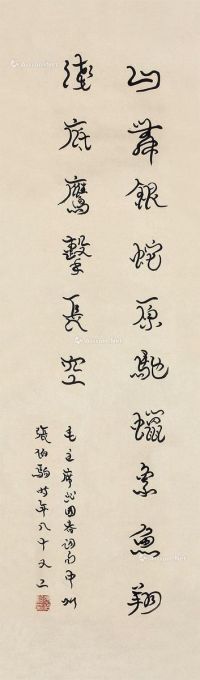 山舞銀蛇原馳蠟象魚翔
淺底鷹擊長空
毛主席沁園春詞句中州
張伯駒時年八十又二